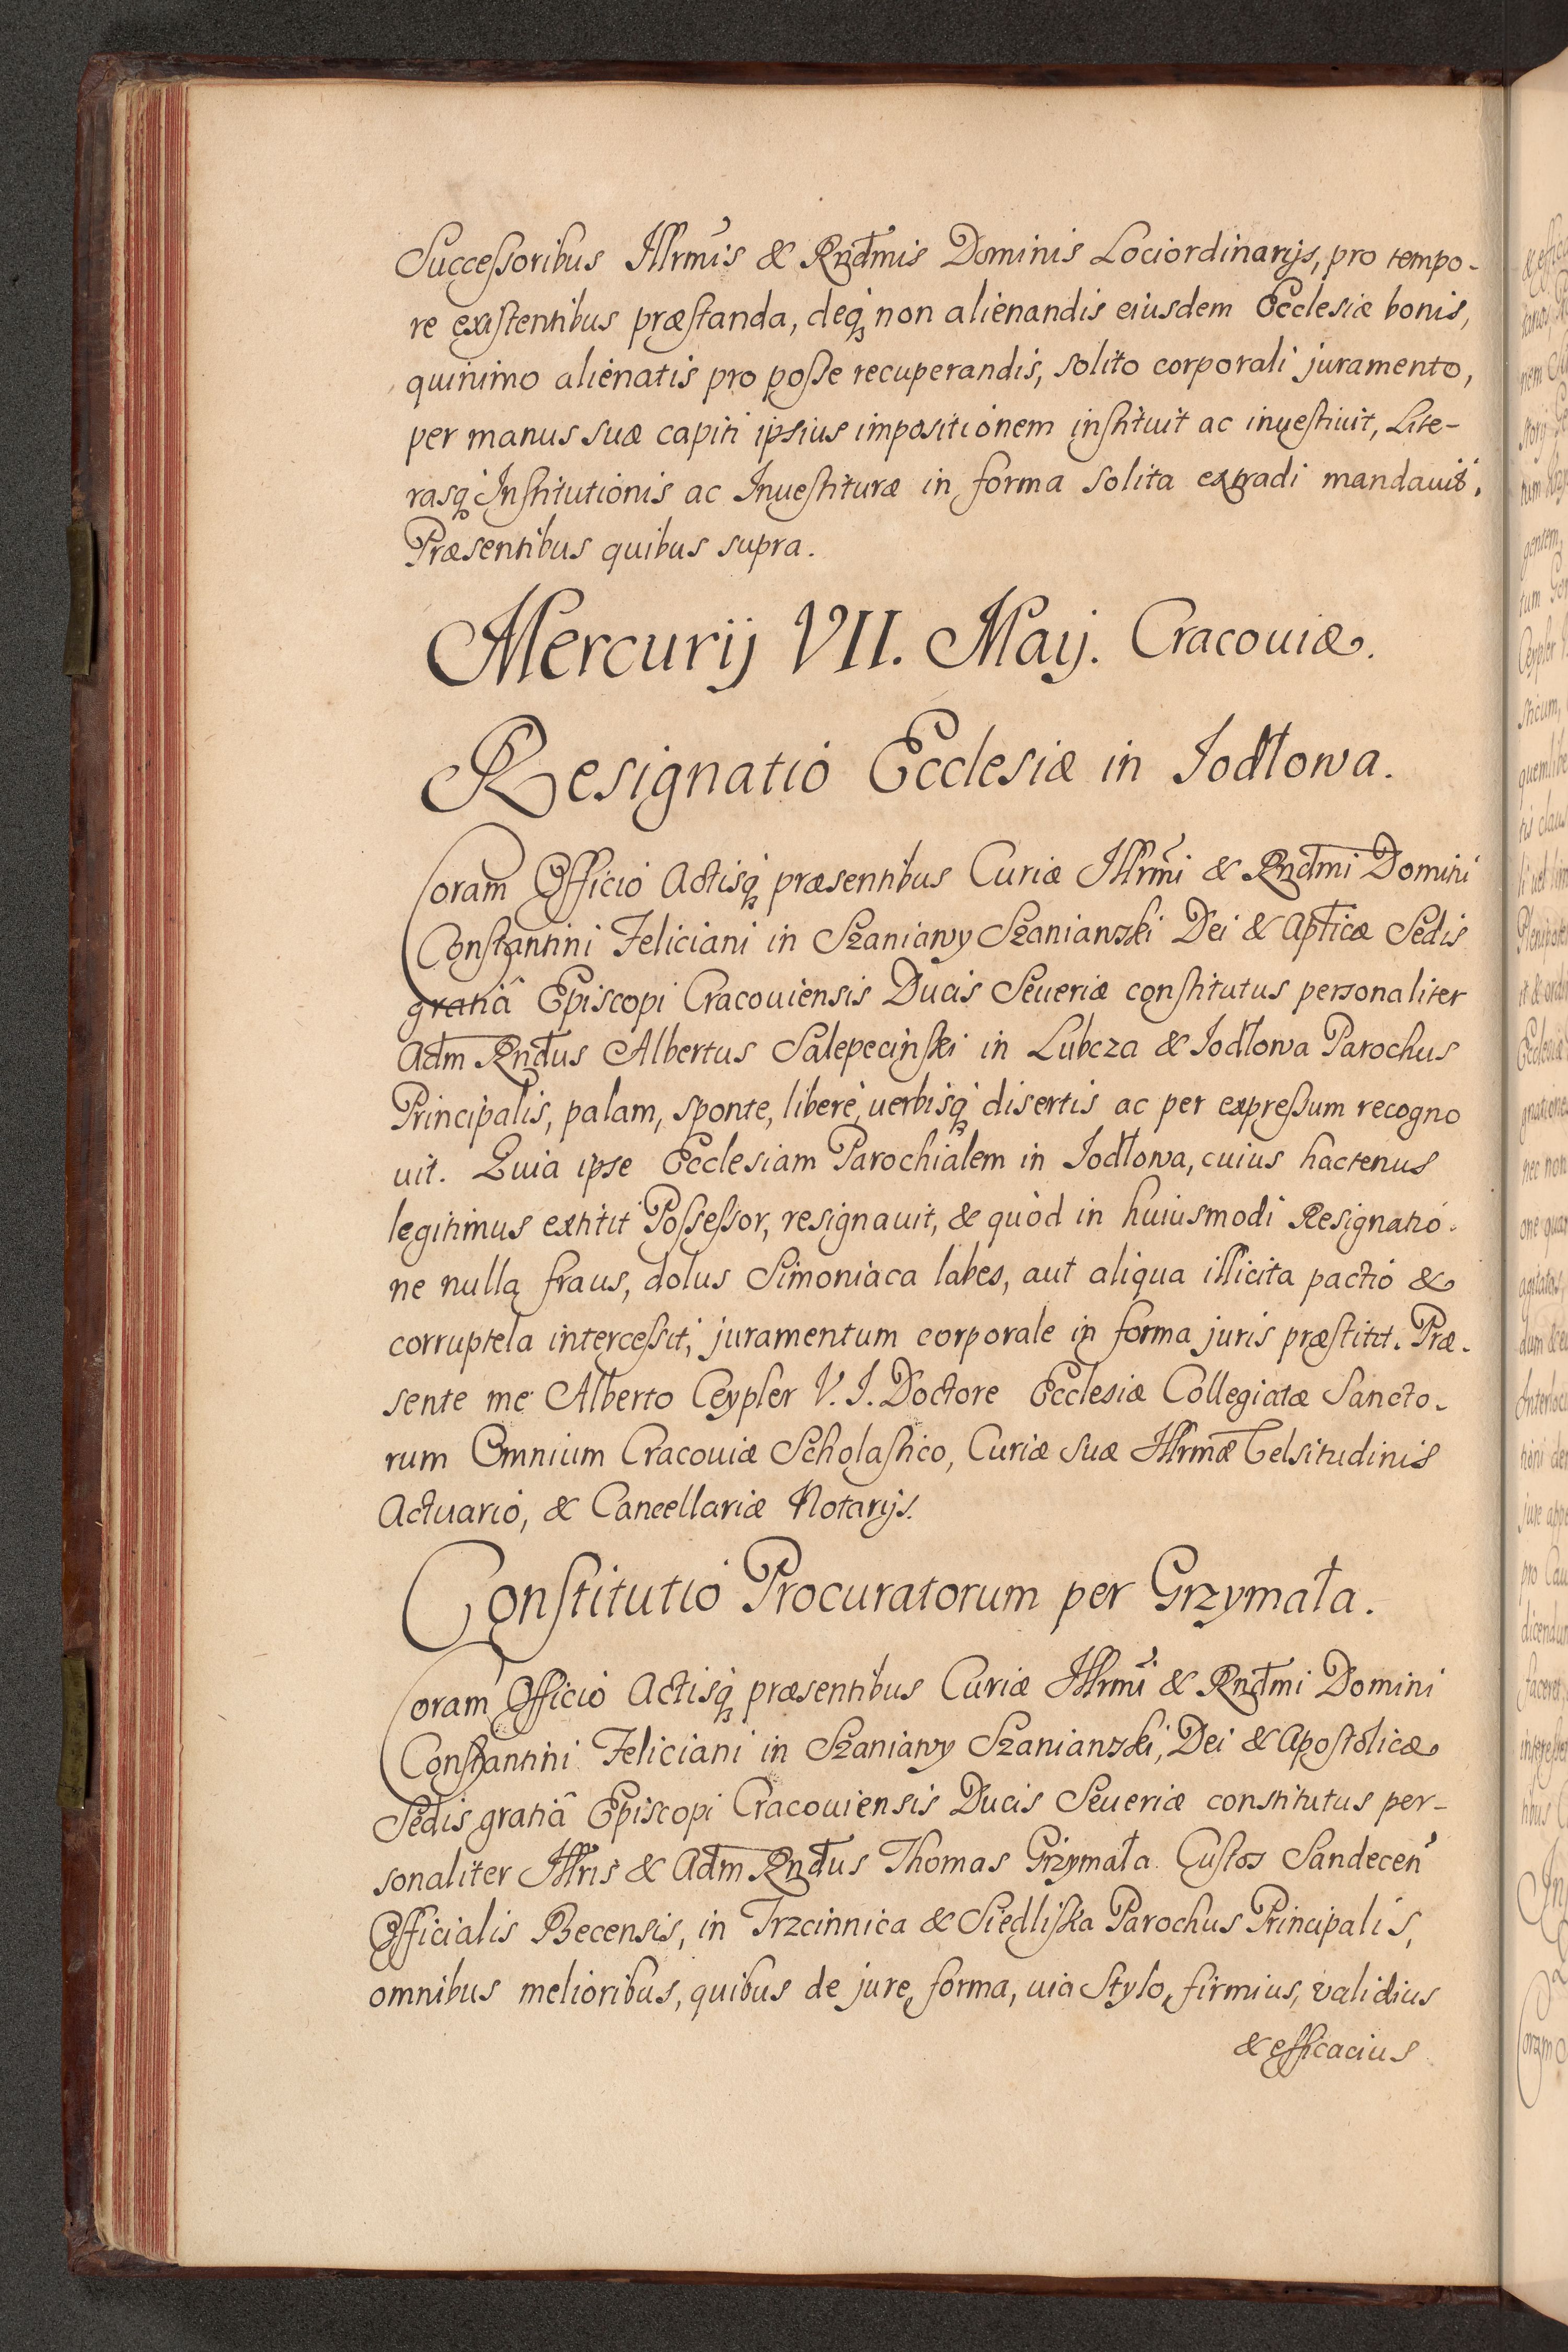 Succeſsoribus Jllrmis & Rndmis Dominis Lociordinarijs, pro tempo-
re exiſtentibus præſtanda, deq́ non alienandis eiusdem Ecclesiæ bonis,
quinimo alienatis pro poſse recuperandis, solito corporali juramento,
per manus suæ capiti ipsius impositionem inſtituit ac inveſtiuit, Lite-
rasq́ Inſtitutionis ac Inueſtituræ in forma solita extradi mandavit.
Præsentibus quibus supra.
Mercurij VII. Maij. Cracouiæ.
Resignatio Ecclesiæ in Jodłowa.
Coram Officio Actisq́ præsentibus Curiæ Jllrmi & Rndmi Domini
Conſtantini Feliciani in Szaniawy Szaniawski Dei & Apticæ Sedis
gratiâ Episcopi Cracouiensis Ducis Seueriæ conſtitutus personaliter
Adm Rndus Albertus Salepecinſki in Lubcza & Jodłowa Parochus
Principalis, palam, sponte, liberè, uerbisq́ disertis ac per expreſsum recogno
uit. Quia ipse Ecclesiam Parochialem in Jodłowa, cuius hactenus
legitimus extitit Poſseſsor, resignauit, & quòd in huiusmodi Resignatio-
ne nulla fraus, dolus Simoniaca labes, aut aliqua illicita pactio &
corruptela interceſsit, juramentum corporale in forma juris præſtitit. Præ-
sente me Alberto Ceypler V. J. Doctore Ecclesiæ Collegiatæ Sancto-
rum Omnium Cracouiæ Scholaſtico, Curiæ suæ Jllrmæ Celsitudinis
Actuario, & Cancellariæ Notarijs.
Conſtitutio Procuratorum per Grzymała.
Coram Officio Actisq́ præsentibus Curiæ Jllrmi & Rndmi Domini
Conſtantini Feliciani in Szaniawy Szaniawski, Dei & Apostolicæ
Sedis gratiâ Episcopi Cracouiensis Ducis Seueriæ constitutus per-
sonaliter Jllris & Adm Rndus Thomas Grzymała Cuſtos Sandecen
Officialis Becensis, in Trzcinnica & Siedliſka Parochus Principalis,
omnibus melioribus, quibus de jure, forma, uia Stylo, firmius, validius
& efficacius